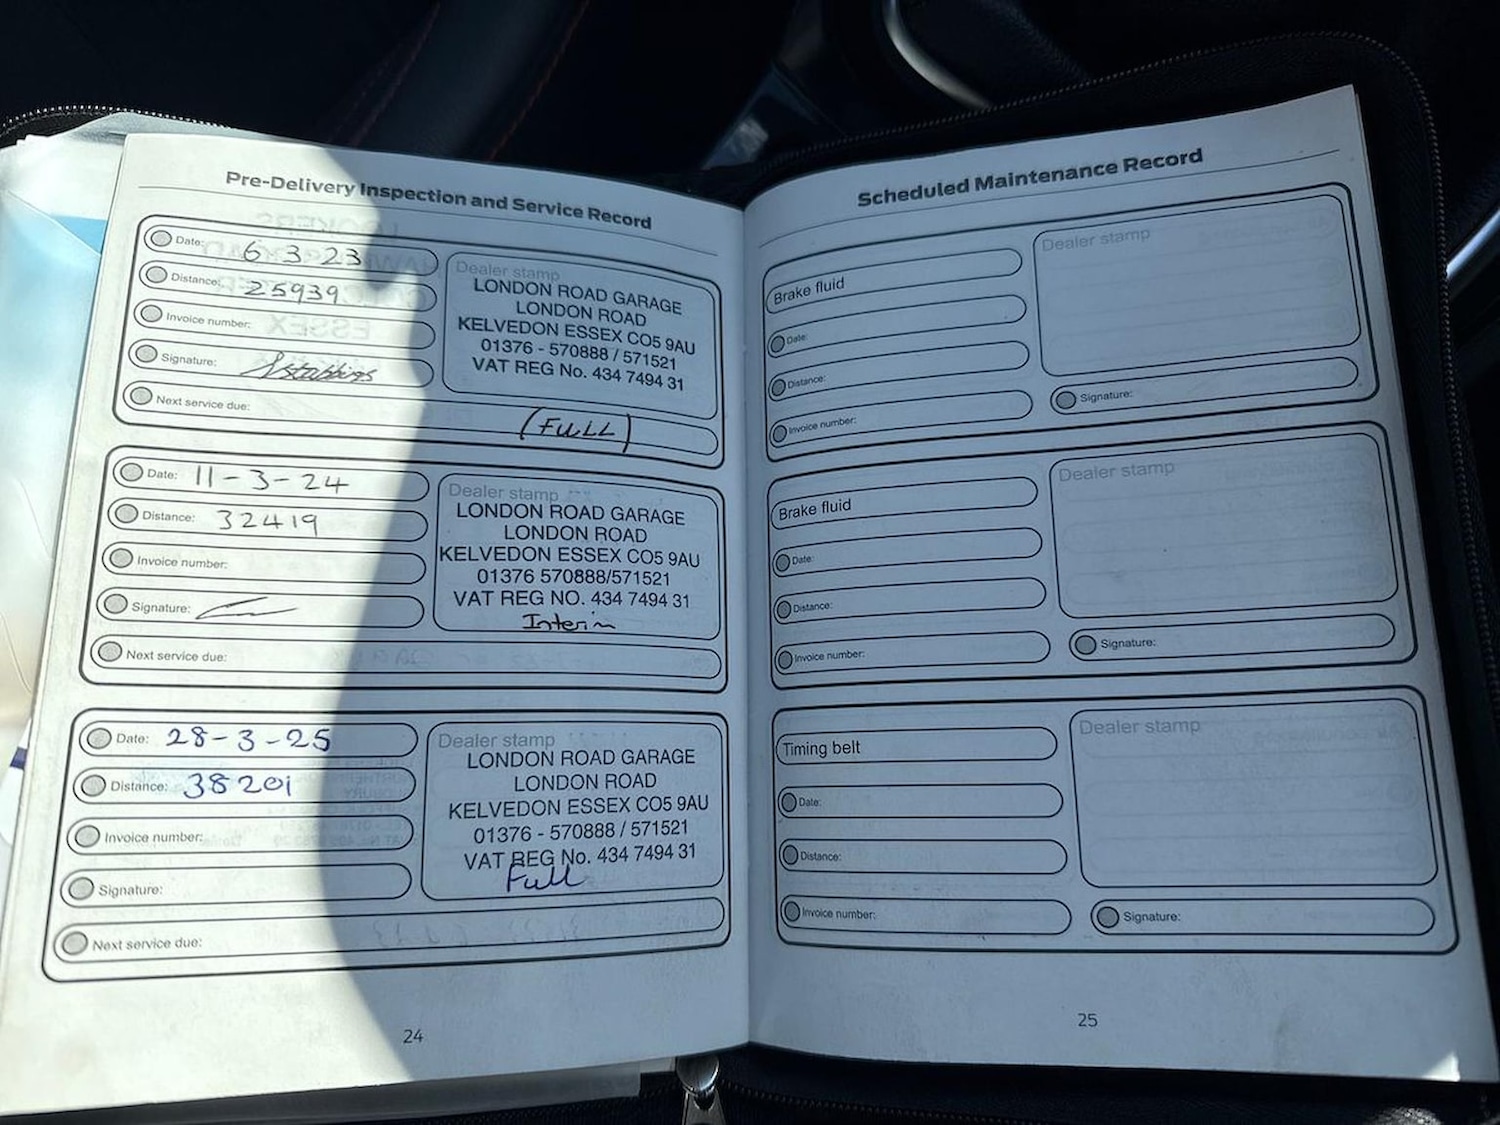 Pre-Delivery Inspection and Service Record
Date: 6-3-23
Distance: 25939
Invoice number:
Signature:
Next service due:
Dealer stamp
LONDON ROAD GARAGE
LONDON ROAD
KELVEDON ESSEX CO5 9AU
01376 - 570888 / 571521
VAT REG No. 434 7494 31
(FULL)
Date: 11-3-24
Distance: 32419
Invoice number:
Signature:
Next service due:
Dealer stamp
LONDON ROAD GARAGE
LONDON ROAD
KELVEDON ESSEX CO5 9AU
01376 570888/571521
VAT REG NO. 434 7494 31
Interim
Date: 28-3-25
Distance: 38201
Invoice number:
Signature:
Next service due:
Dealer stamp
LONDON ROAD GARAGE
LONDON ROAD
KELVEDON ESSEX CO5 9AU
01376 - 570888 / 571521
VAT REG No. 434 7494 31
Full
24
Scheduled Maintenance Record
Brake fluid
Date:
Distance:
Invoice number:
Dealer stamp
Signature:
Brake fluid
Date:
Distance:
Invoice number:
Dealer stamp
Signature:
Timing belt
Date:
Distance:
Invoice number:
Dealer stamp
Signature:
25